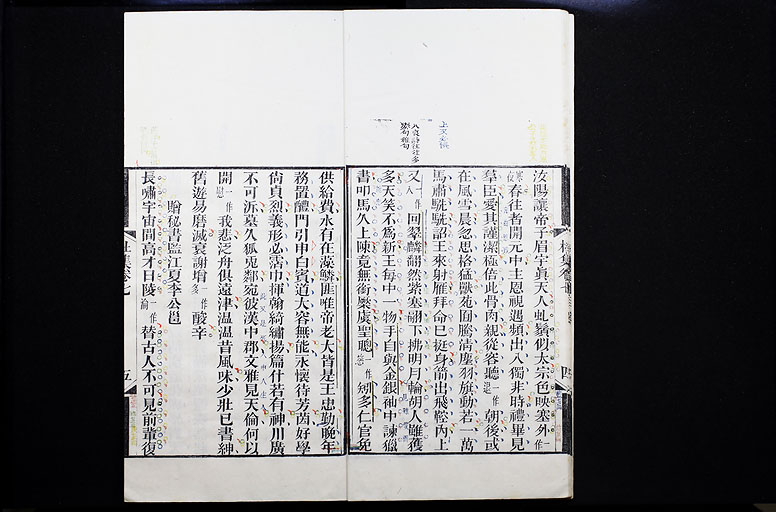 汝陽讓帝子眉宇眞天人虬鬚似太宗色映塞外一作
寒夜春往者開元中主恩視遇頻出入獨非時禮異見
羣臣愛其謹潔極倍此骨肉親從容聽一作退朝後或
在風雪晨忽思格猛獸苑囿騰清塵羽旗動若一萬
馬肅駪駪詔王來射雁拜命已挺身箭出飛鞚內上
又一作入回翠麟翻然紫塞翮下拂明月輪胡人雖獲
多天笑不爲新王每中一物手自與金銀袖中諫獵
書叩馬久上陳竟無銜橛虞聖聰一作矧多仁官免
供給費水有在藻鱗匪唯帝老大皆是王忠勤晚年
務置醴門引申白賓道大容無能永懷侍芳茵好學
尚貞烈義形必霑巾揮翰綺繡揚篇什若有神川廣
不可泝墓久狐兔鄰宛彼漢中郡文雅見天倫何以
開一作慰我悲泛舟俱遠津温温昔風味少壯已書紳
舊遊易磨滅衰謝增一作多酸辛
贈秘書監江夏李公邕
長嘯宇宙間高才日陵一作淪替古人不可見前輩復